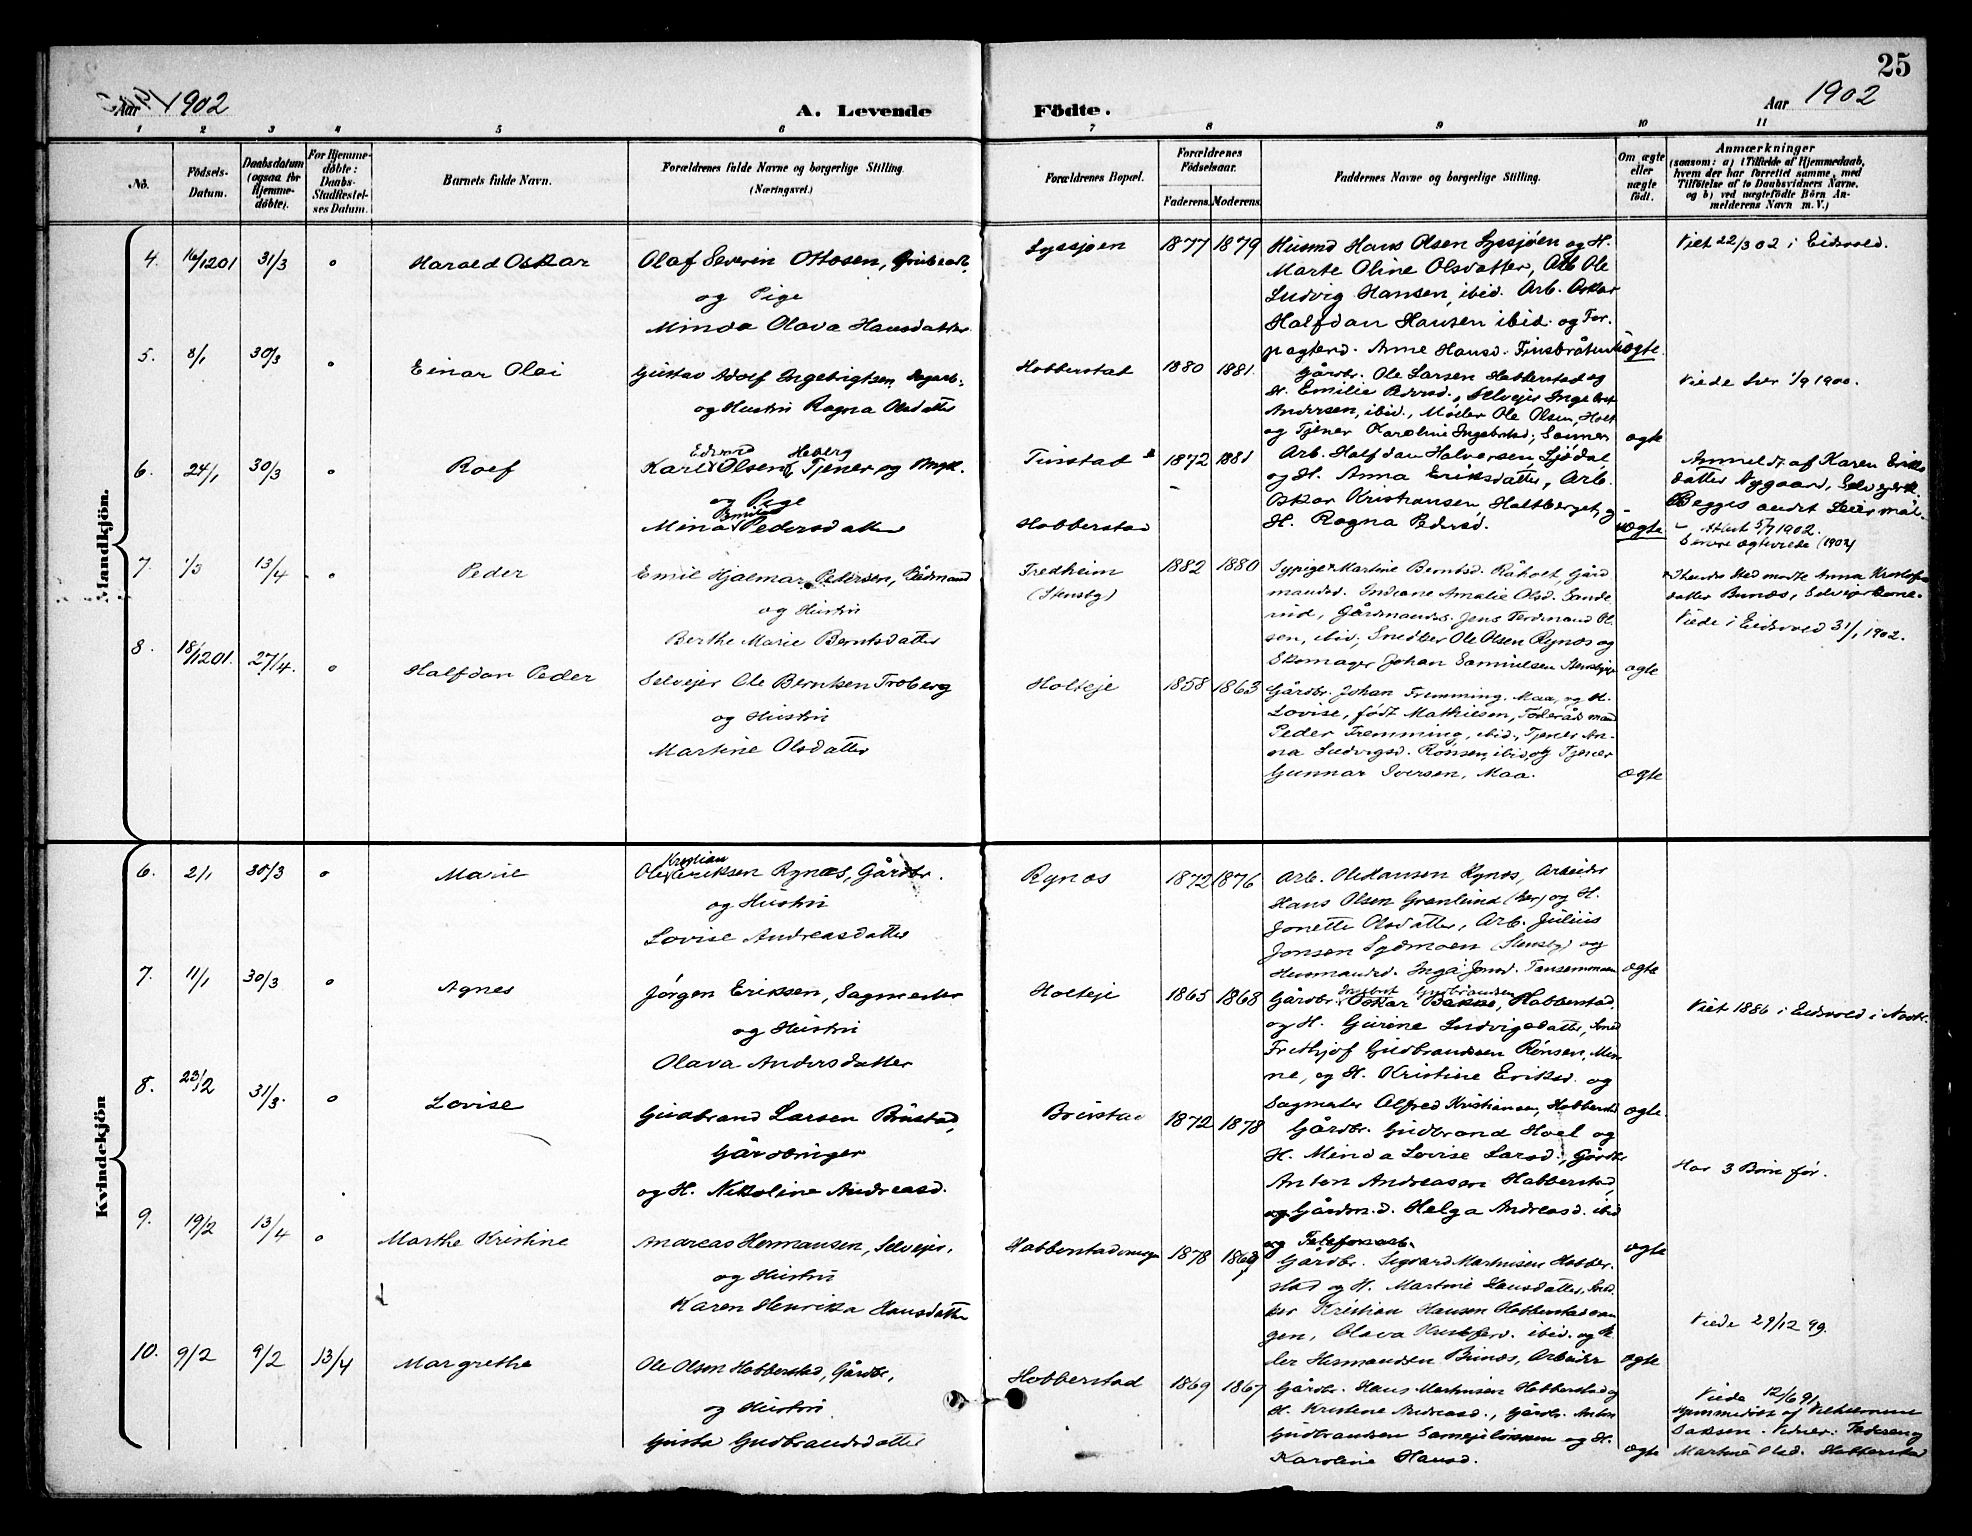 25
Aar 1902
A. Levende
Födte.
Aar 1902
1 2 3 4 5 6 7 8 9 10 11
No.
Födsels-
Datum.
Daabsdatum
(ogsaa for
Hjemme-
døbte).
For Hjemme-
døbte:
Daabs-
Stadfæstel-
ses Datum.
Barnets fulde Navn.
Forældrenes fulde Navne og borgerlige Stilling.
(Næringsvei.)
Forældrenes Bopæl.
Forældrenes
Födselsaar.
Faderens. Moderens.
Faddernes Navne og borgerlige Stilling.
Om ægte
eller
uægte
födt.
Anmærkninger
(saasom: a) i Tilfælde af Hjemmedaab,
hvem der har forrettet samme, med
Tilföielse af to Daabsvidners Navne,
og b) ved uægtefödte Börn An-
melderens Navn m. V.)
Mandkjön.
4. 16/12 01 31/3 " Harald Oskar
Olaf Severin Ottosen,
og Pige
Minda Olava Hansdatter
Lyssjøen 1877 1879
Husmd Hans Olsen Lyssjøen og H.
Marte Oline Olsdatter, Arb Ole
Ludvig Hansen, ibid. Arb. Oskar
Halfdan Hansen ibid. og For-
pagterd. Anne Hansd. Finsbråten
uægte.
Viet 22/3 02 i Eidsvold.
5. 8/1 30/3 " Einar Olai
Gustav Adolf Ingebrigtsen, Dagarb.
og Hustru Ragna Olsdatter
Hobberstad 1880 1881.
Gårdbr. Ole Larsen Hobberstad og
H. Emilie Pedersd., Selveier Ingebret
Andersen, ibid., Møller Ole Olsen, Holt
og Tjener Karoline Ingebrtsd.,
ægte
Viede her 1/9 1900.
6. 24/1 30/3 " Rolf
Karl Edvard Olsen Heberg Tjener og
og Pige
Mina Emilie Pedersdatter
Tinstad
Hobberstad
1872 1881
Arb. Halfdan Halvorsen, Sjödal
og H. Anna Eriksdatter, Arb.
Oskar Kristiansen, Holtberget, og
H. Ragna Pedersd.
uægte
Anmeldt af Karen Eriks-
datter Nygaard, Selveierk.
Begges andet Leiermål.
- Attest 5/7 1902.
Senere ægteviede (1902)
7. 1/3 13/4 " Peder
Emil Hjalmar Pedersen, Rådmand
og Hustru
Berthe Marie Berntsdatter
Fredheim
(Stensby)
1882 1880
Sypige Martine Berntsd. Råholt, Gård-
mandsd. Indiane Amalie Olsd. Sande-
rud, Gårdmands. Jens Ferdinand Ol-
sen, ibid; Snedker Ole Olsen Rynæs og
Skomager Johan Samuelsen Stensby
ægte
I hendes Sted mødte Anna Kristofers-
datter Bunæs, Selveierkone.
Viede i Eidsvold 31/1 1902.
8. 18/12 01. 27/4. " Halfdan Peder
Selveier Ole Berntsen Troberg
og Hustru
Martine Olsdatter
Holteje 1858 1863
Gårdbr. Johan Fremming, Maa, og H.
Lovise, født Mathiesen, Föderåds mand
Peder Fremming, ibid., Tjener An-
na Ludvigsd. Rønsen, ibid, og Tjener
Gunnar Iversen, Maa.
ægte
Kvindekjön
6. 2/1 30/3 " Marie
Ole Kristian Eriksen Rynæs, Gårdbr.
og Hustru
Lovise Andreasdatter
Rynæs 1872 1876
Arb. Ole Hansen Rynæs, Arbeider
Hans Olsen Grønlund (her) og H.
Jonette Olsdatter, Arb. Julius
Jonsen Sydmoen (Stensby) og
Husmandsd. Inga Jonsd. Tansemmoen
ægte
7. 11/1 30/3 " Agnes
Jörgen Eriksen, Sagmester
og Hustru
Olava Andersdatter
Holteje 1865 1868
Gårdbr. Ingebret Gudbrandsen Hobberstad,
og H. Gurine Ludvigsdatter, Smed
Frithjof Gudbrandsen Rønsen, Min-
ne, og H. Kristine Eriksd. og
Sagmester Alfred Kristiansen, Hobberstad
ægte
Viet 1886 i Eidsvold i Novbr.
8. 23/2 31/3. " Lovise
Gudbrand Larsen Brustad,
Gårdbruger
og H. Nikoline Andreasd.
Brustad 1872 1878
Gårdbr. Gudbrand Hoel og
H. Minda Lovise Larsd., Gårdbr
Anton Andreasen Hobberstad,
og Gårdm.d. Helga Andreasd. ibid
og Telefonarb.
ægte
Har 3 Børn før.
9. 19/2 13/4 " Marthe Kristine
Andreas Hermansen, Selveier,
og Hustru
Karen Henrika Hansdatter
Hobberstadvangen 1878 1869
Gårdbr. Sigvard Martinsen Hobber-
stad og H. Martine Hansdatter, Sned-
ker Kristian Hansen Hobberstadvan-
gen, Olava Kristofersd. ibid. og
Hermansen Bunæs, Arbeider
ægte
Viede 29/12 99.
10. 9/2 9/2 13/4 Margrethe
Ole Olsen Hobberstad, Gårdbr,
og Hustru
Gusta Gudbrandsdatter
Hobberstad 1869 1867
Gårdbr. Hans Martinsen Hobberstad og
H. Kristine Andreasd., Gårdbr Anton
Gudbrandsen Samejeløkken og H.
Karoline Hansd.
ægte
Viede 12/6 91
Hjemmedøbt af Vilhelmine
Isaksen. Vidner: Faderen og
Martine Olsd. Hobberstad